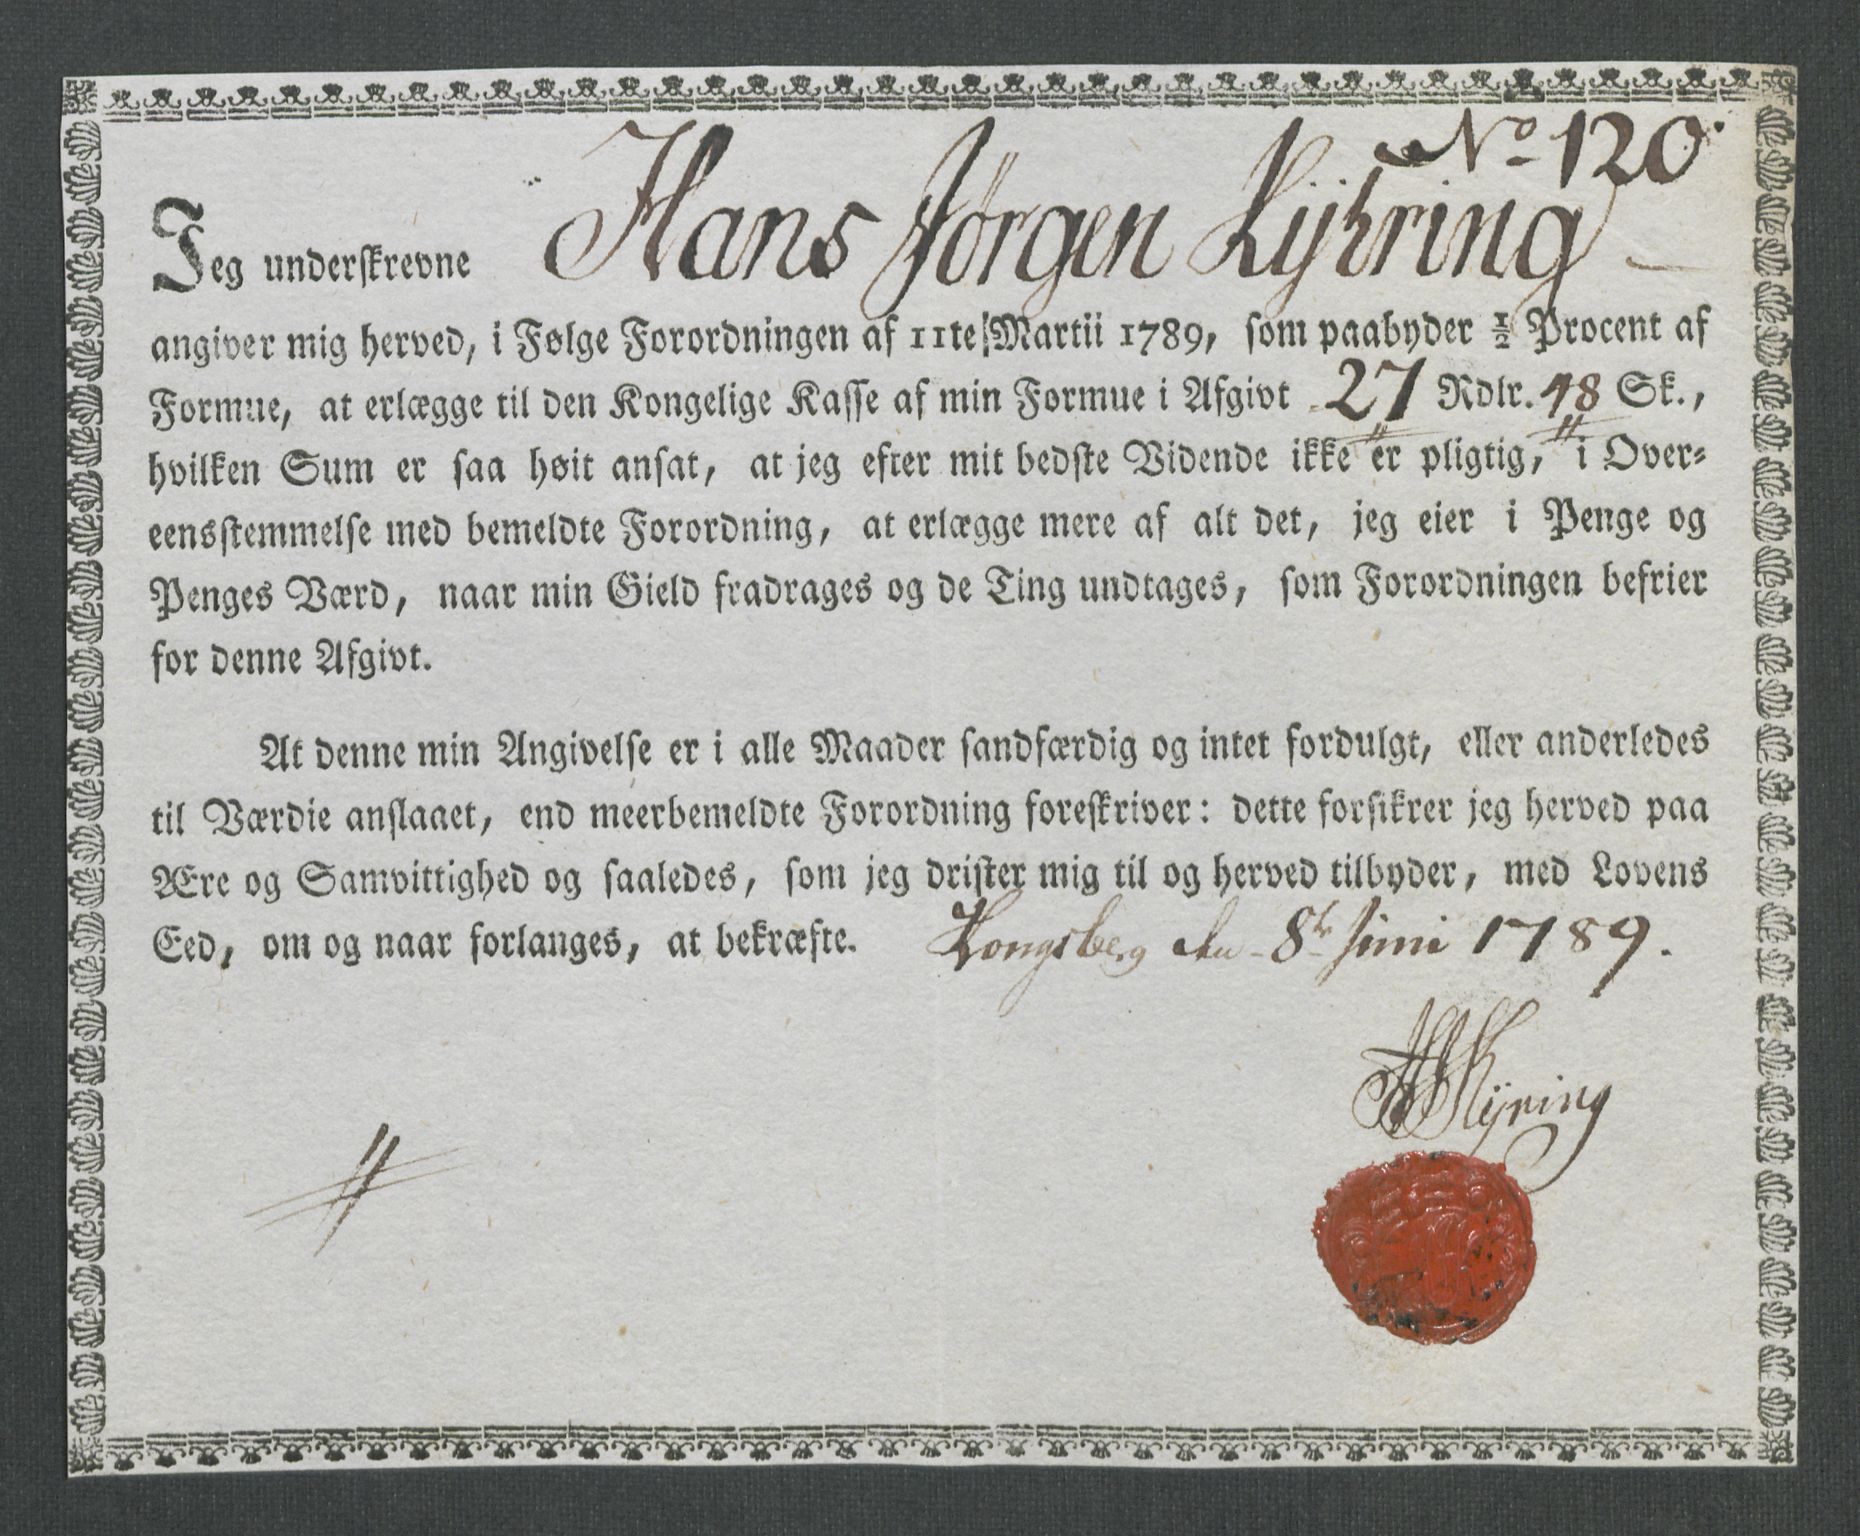 No 120.
Jeg underskrevne Hans Jørgen Kijhring
angiver mig herved, i Følge Forordningen af 11te Martii 1789, som paabyder ½ Procent af
Formue, at erlægge til den Kongelige Kasse af min Formue i Afgivt 27 Rdlr. 48 Sk.,
hvilken Sum er saa høit ansat, at jeg efter mit bedste Vidende ikke er pligtig, i Over-
eensstemmelse med bemeldte Forordning, at erlægge mere af alt det, jeg eier i Penge og
Penges Værd, naar min Gield fradrages og de Ting undtages, som Forordningen befrier
for denne Afgivt.
At denne min Angivelse er i alle Maader sandfærdig og intet fordulgt, eller anderledes
til Værdie anslaaet, end meerbemeldte Forordning foreskriver: dette forsikrer jeg herved paa
Ære og Samvittighed og saaledes, som jeg drister mig til og herved tilbyder, med Lovens
Eed, om og naar forlanges, at bekræfte. Kongsberg den 8te Juni 1789.
HJKijring